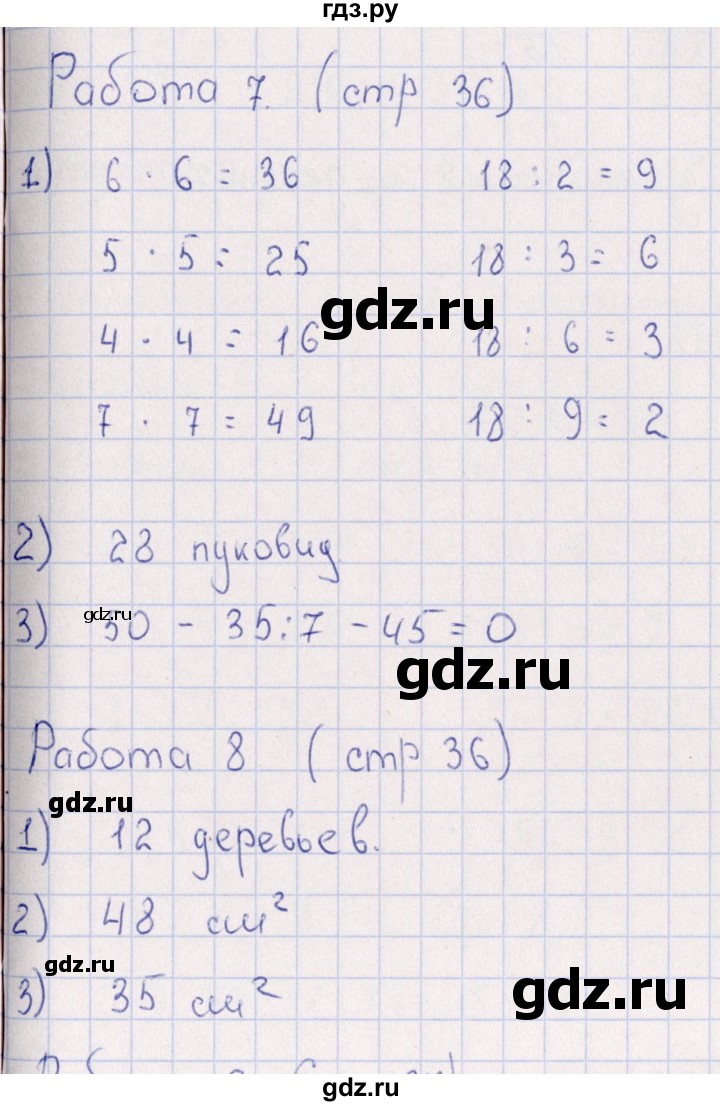 гдз.ру
Работа 7. (стр 36)
1) 6 · 6 = 36 18 : 2 = 9
5 · 5 = 25 18 : 3 = 6
gdz.ru
4 · 4 = 16 18 : 6 = 3
7 · 7 = 49 18 : 9 = 2
2) 28 пуковид
gdz.ru
3) 50 - 35:7 - 45 = 0
gdz.ru
Работа 8 (стр 36)
gdz.ru
1) 12 деревьев.
2) 48 см²
gdz.ru
3) 35 см²
gdz.ru
gdz.ru